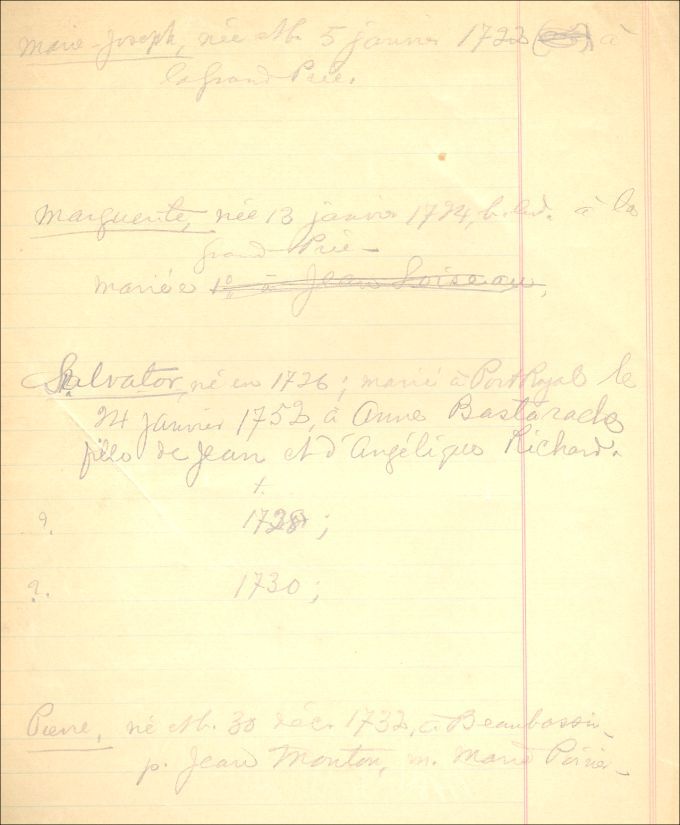 Marie-Joseph, née et b. 5 janvier 1722 à
la Grand Prée.
Marguerite, née 13 janvier 1724, b. led. à la
Grand-Prée
mariée 1º à Jean Loiseau,
Salvator, né en 1726 ; marié à Port Royal le
24 janvier 1752, à Anne Bastarache
fille de Jean et d'Angélique Richard.
?. 1728 ;
?. 1730 ;
Pierre, né et b. 30 déc. 1732, à Beaubassin
p. Jean Mouton, m. Marie Poirier